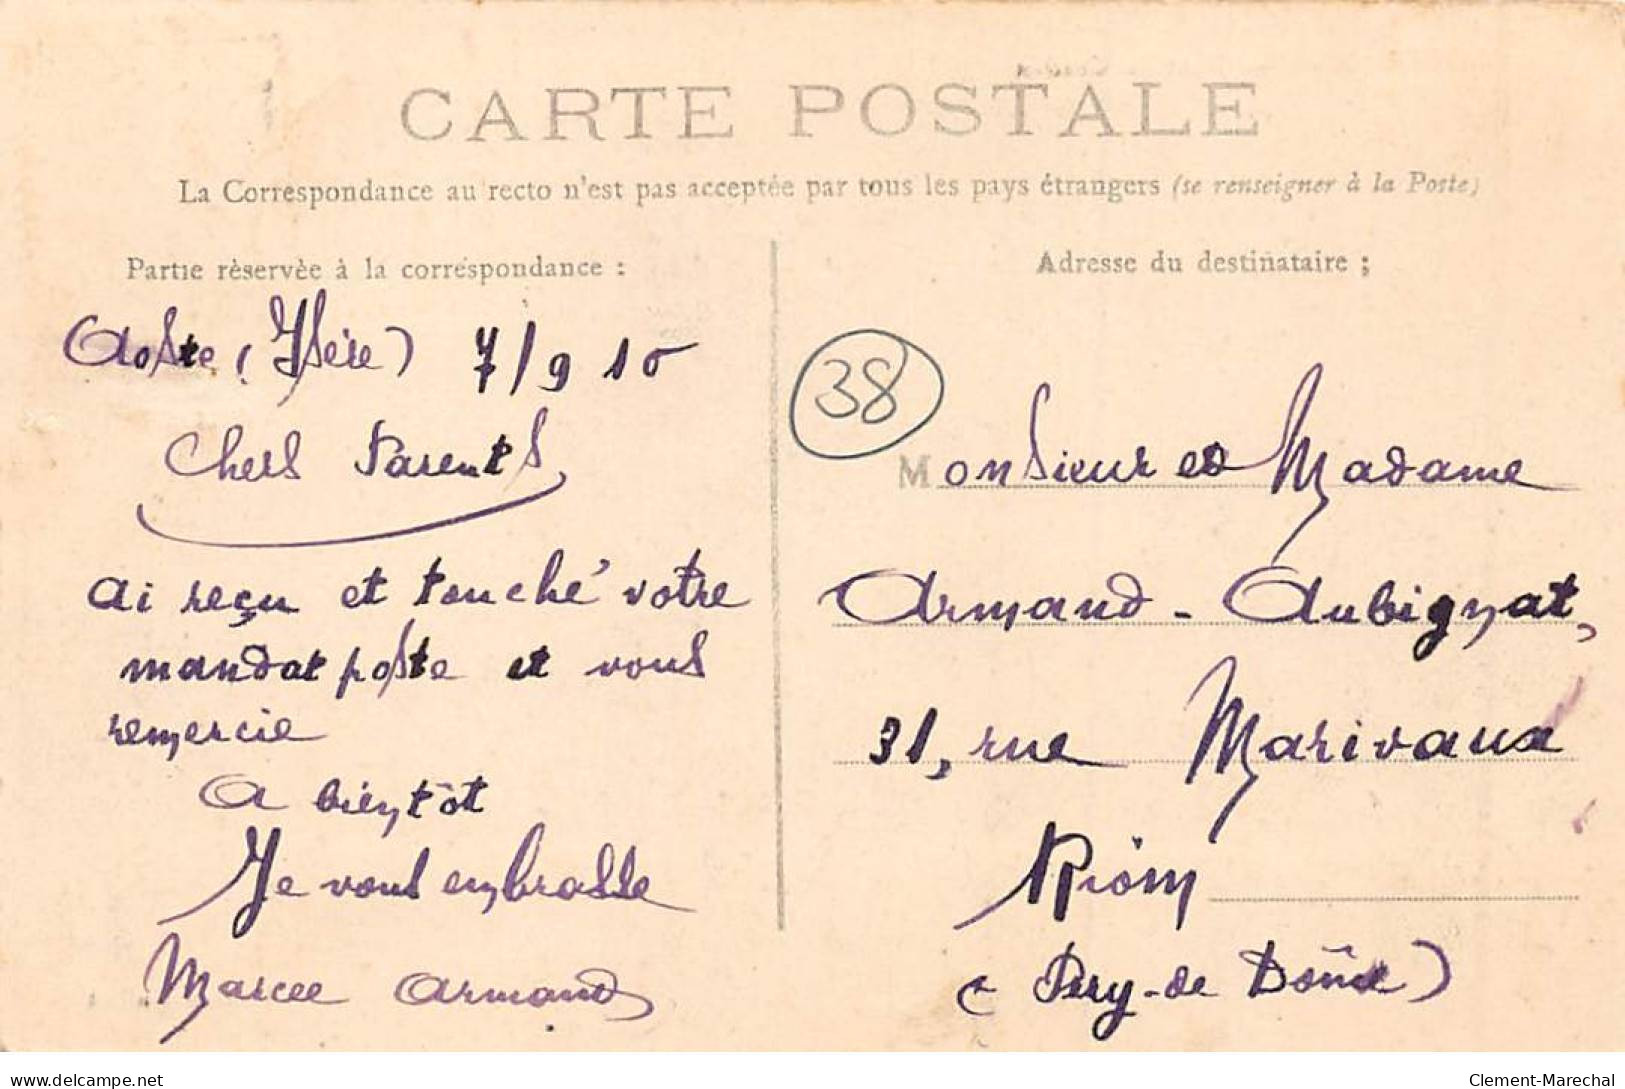 CARTE POSTALE
La Correspondance au recto n'est pas acceptée par tous les pays étrangers (se renseigner à la Poste)
Partie réservée à la correspondance :
Aoste (Isère) 7/9 10
Chers Parents
ai reçu et touché votre
mandat poste et vous
remercie
A bientôt
Je vous embrasse
Marcel Armand
38
Adresse du destinataire ;
Monsieur et Madame
Armand-Aubignat,
31, rue Marivaux
Riom
(Puy-de Dôme)
delcampe.net
Clement-Marechal